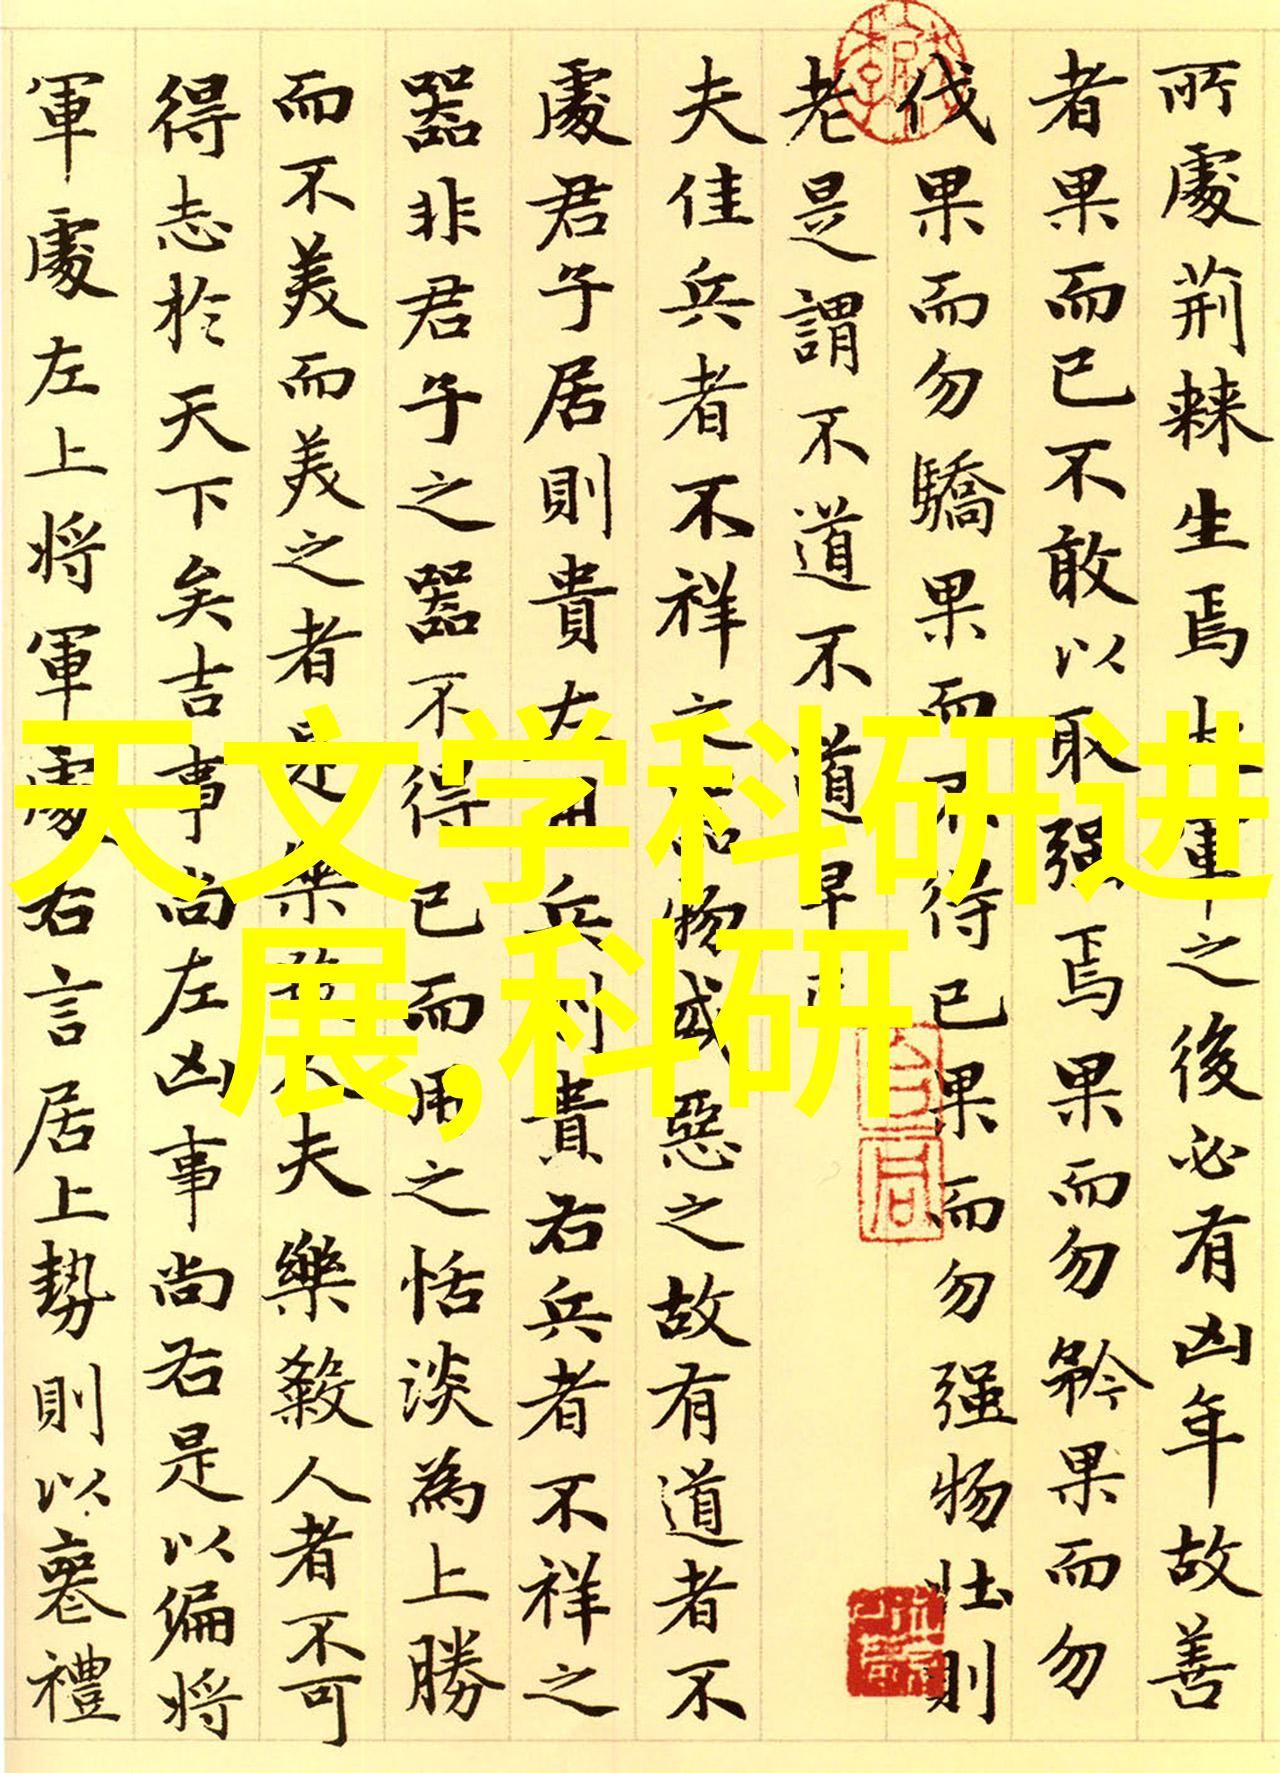 所處荊棘生焉大軍之後必有凶年故善
者果而已不敢以取强焉果而勿矜果而勿
伐果而勿驕果而不得已果而勿强物壯則
老是謂不道不道早已
夫佳兵者不祥之器物或惡之故有道者不
處君子居則貴左用兵則貴右兵者不祥之
器非君子之器不得已而用之恬淡為上勝
而不美而美之者是樂殺人夫樂殺人者不可
得志於天下矣吉事尚左凶事尚右是以偏將
軍處左上將軍處右言居上勢則以喪禮
天文学科研进
展,科研